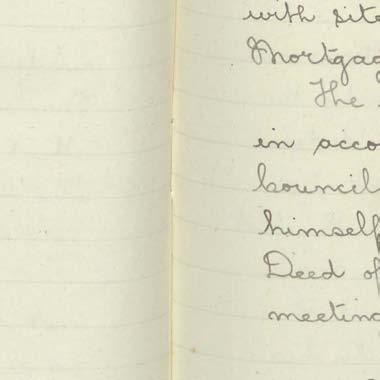 with site
Mortgag
The
in acco
Council
himself
Deed of
meeting